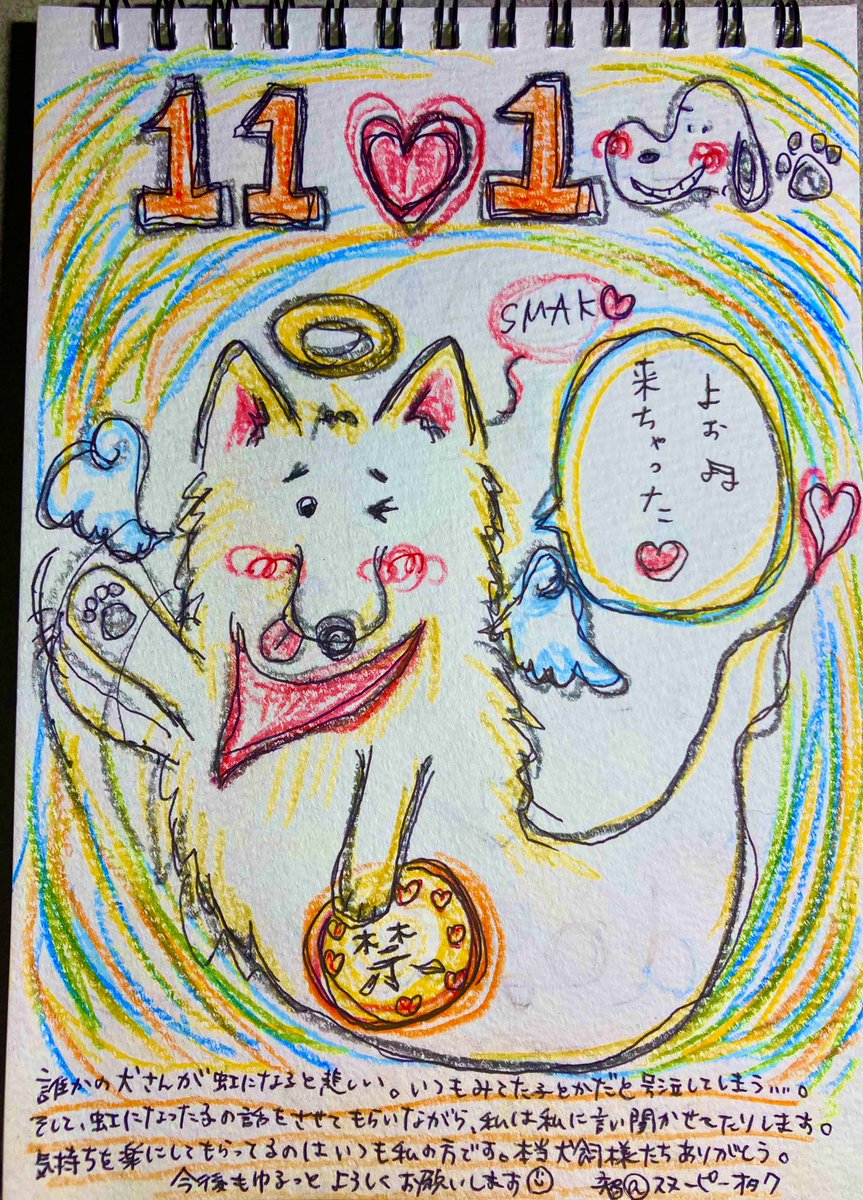 11♡1
SMAK♡
よお♫
来ちゃった♡
禁
誰かの犬さんが虹になると悲しい。いつもみてた子とかだと号泣してしまう....。
そして、虹になった子の話をさせてもらいながら、私は私に言い聞かせてたりします。
気持ちを楽にしてもらってるのはいつも私の方です。本当犬飼様たちありがとう。
今後もゆるっとよろしくお願いします☺ @スヌーピーオタク